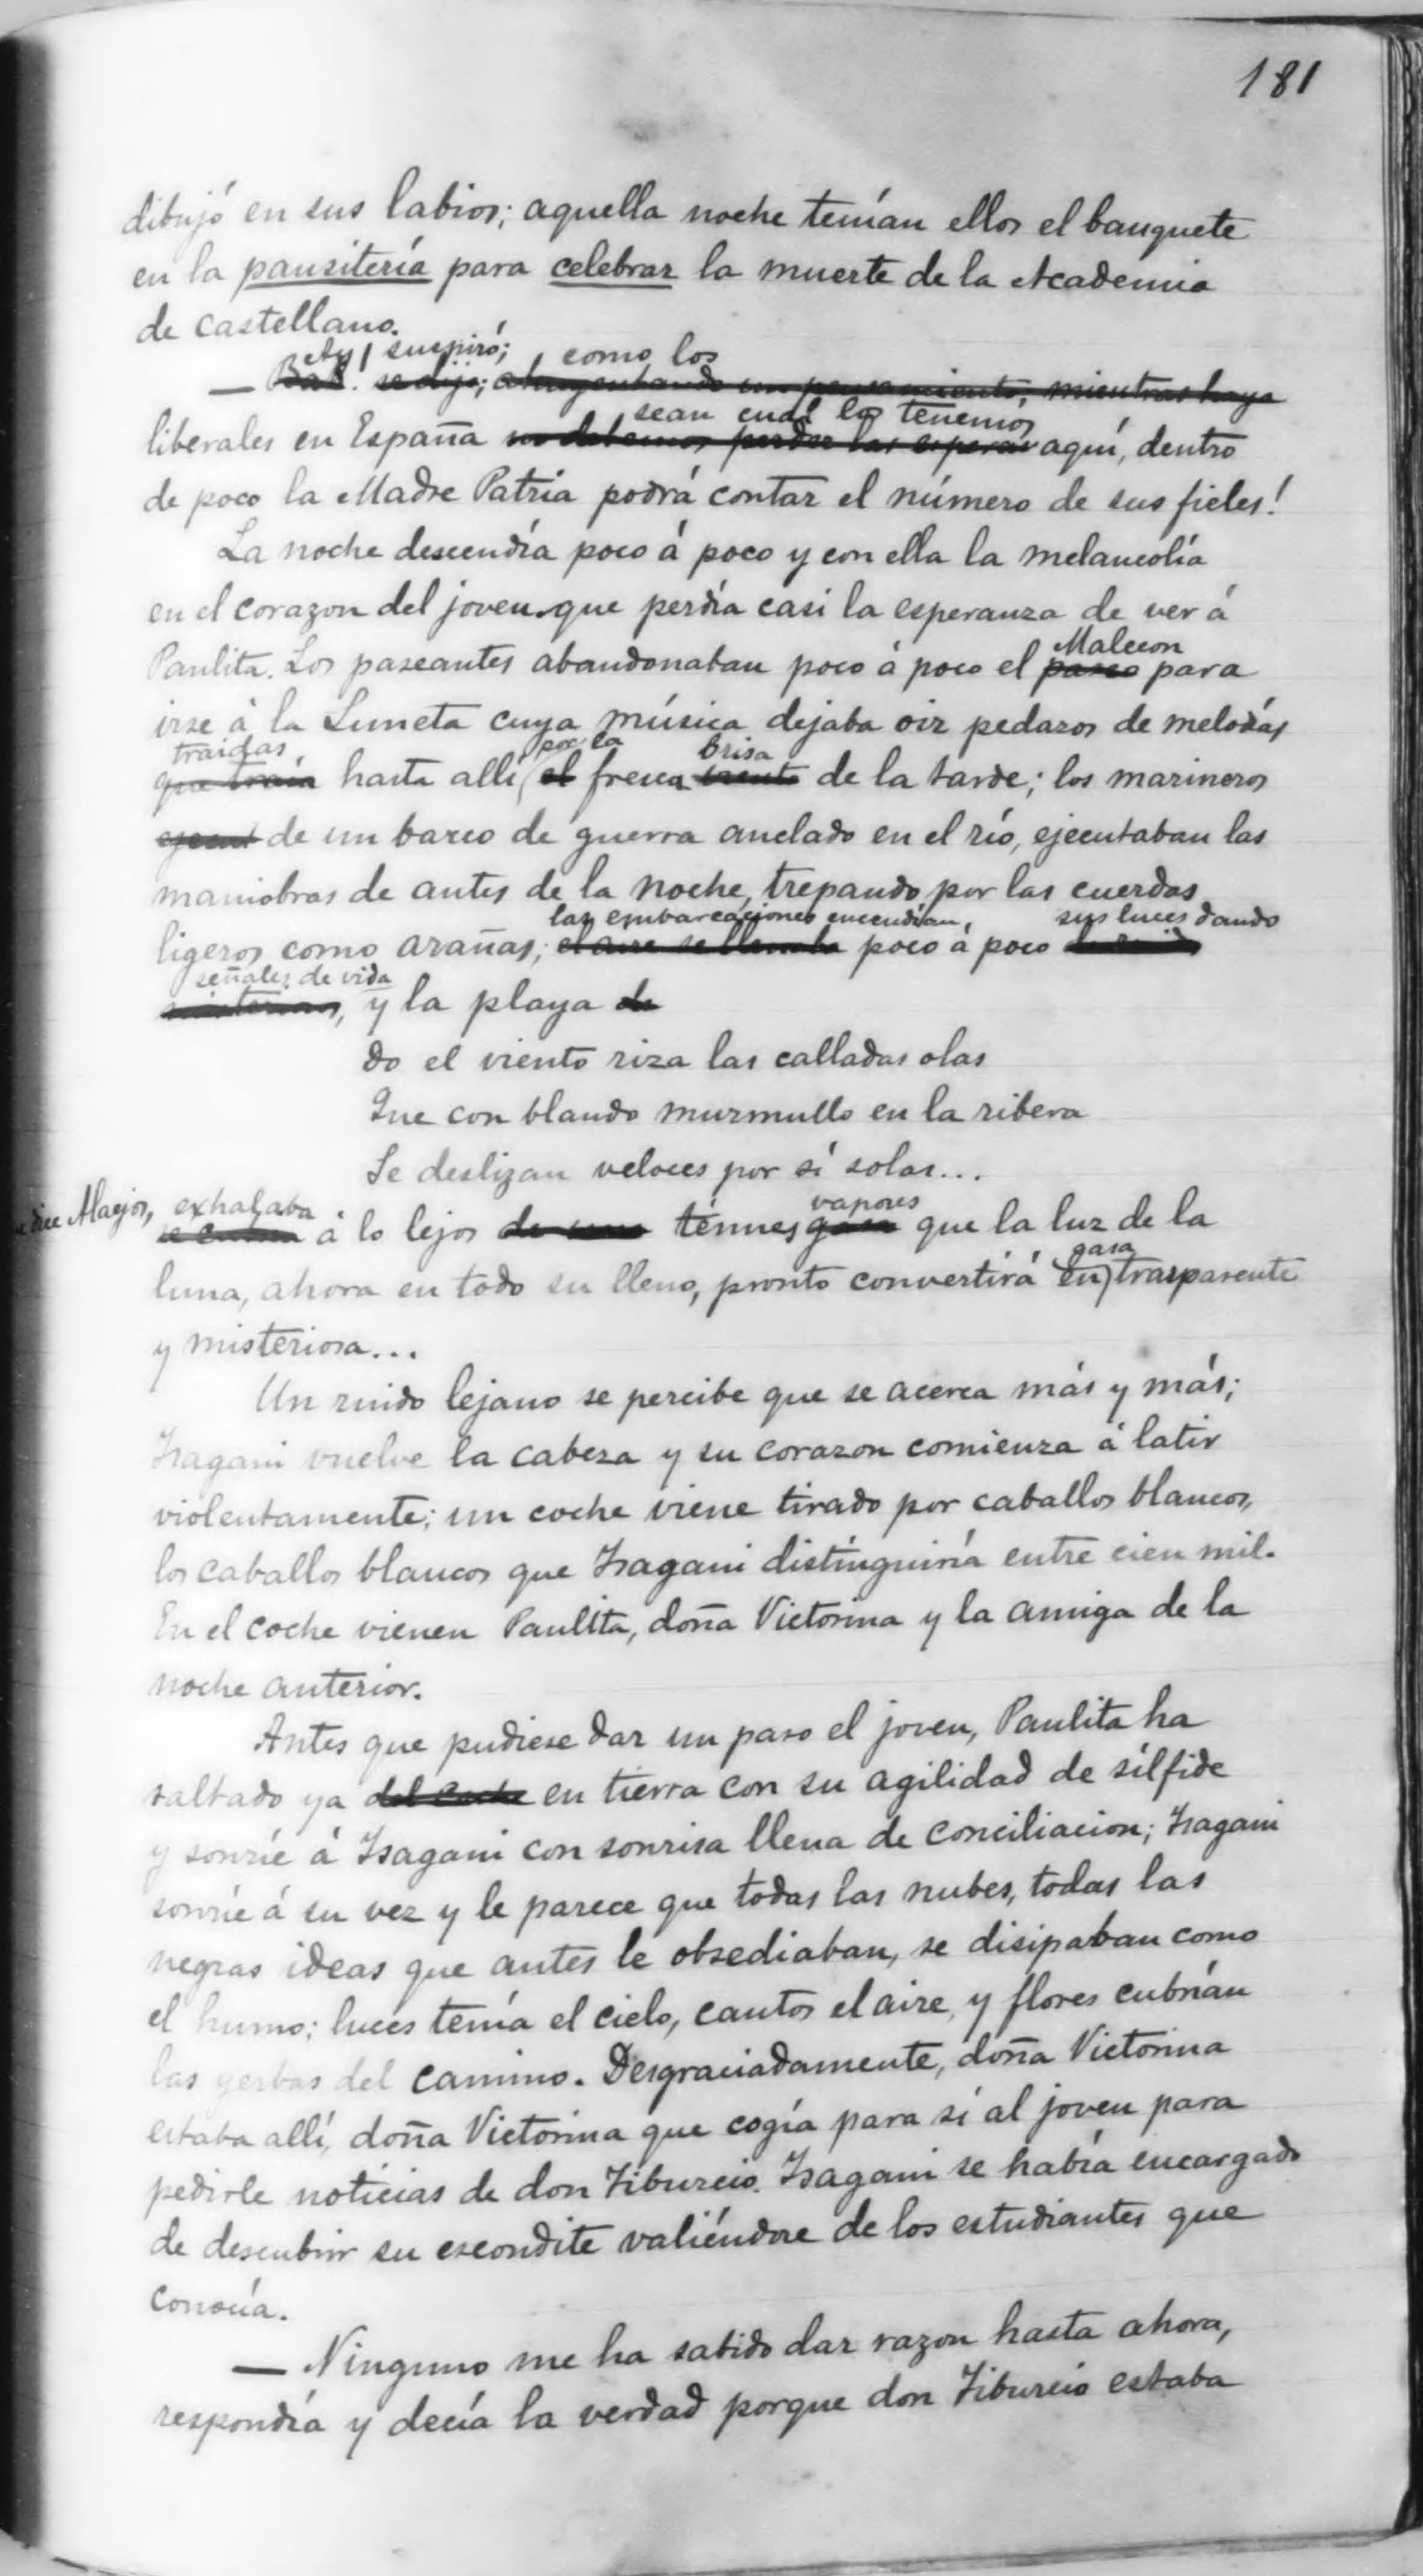 181
dibujó en sus labios; aquella noche tenían ellos el banquete
en la pansitería para celebrar la muerte de la Academia
de castellano.
Ay! suspiró; como los
— Bah! se dijo; ahuyentando un pensamiento, mientras haya
sean cual los tenemos
liberales en España no debemos perder las esperan aquí, dentro
de poco la Madre Patria podrá contar el número de sus fieles!
La noche descendía poco á poco y con ella la melancolía
en el corazon del joven que perdía casi la esperanza de ver á
Malecon
Paulita. Los paseantes abandonaban poco á poco el paseo para
irse á la Luneta cuya música dejaba oir pedazos de melodías
traidas por la brisa
que traía hasta allí el fresca viento de la tarde; los marineros
ejecut de un barco de guerra anclado en el río, ejecutaban las
maniobras de antes de la noche, trepando por las cuerdas
las embarcaciones encendían, sus luces dando
ligeros como arañas; el aire se llenaba poco á poco
señales de vida
misteriosos, y la playa de
do el viento riza las calladas olas
Que con blando murmullo en la ribera
Se deslizan veloces por sí solas...
dice Alaejos, exhalaba vapores
se cubría á lo lejos de una ténues gasa que la luz de la
gasa
luna, ahora en todo su lleno, pronto convertirá en trasparente
y misteriosa...
Un ruido lejano se percibe que se acerca más y más;
Isagani vuelve la cabeza y su corazon comienza á latir
violentamente; un coche viene tirado por caballos blancos,
los caballos blancos que Isagani distinguiría entre cien mil.
En el coche vienen Paulita, doña Victorina y la amiga de la
noche anterior.
Antes que pudiese dar un paso el joven, Paulita ha
saltado ya del coche en tierra con su agilidad de sílfide
y sonríe á Isagani con sonrisa llena de conciliacion; Isagani
sonríe á su vez y le parece que todas las nubes, todas las
negras ideas que antes le obsediaban, se disipaban como
el humo; luces tenía el cielo, cantos el aire, y flores cubrían
las yerbas del camino. Desgraciadamente, doña Victorina
estaba allí, doña Victorina que cogía para sí al joven para
pedirle noticias de don Tiburcio. Isagani se había encargado
de descubrir su escondite valiéndose de los estudiantes que
conocía.
— Ninguno me ha sabido dar razon hasta ahora,
respondía y decía la verdad porque don Tiburcio estaba